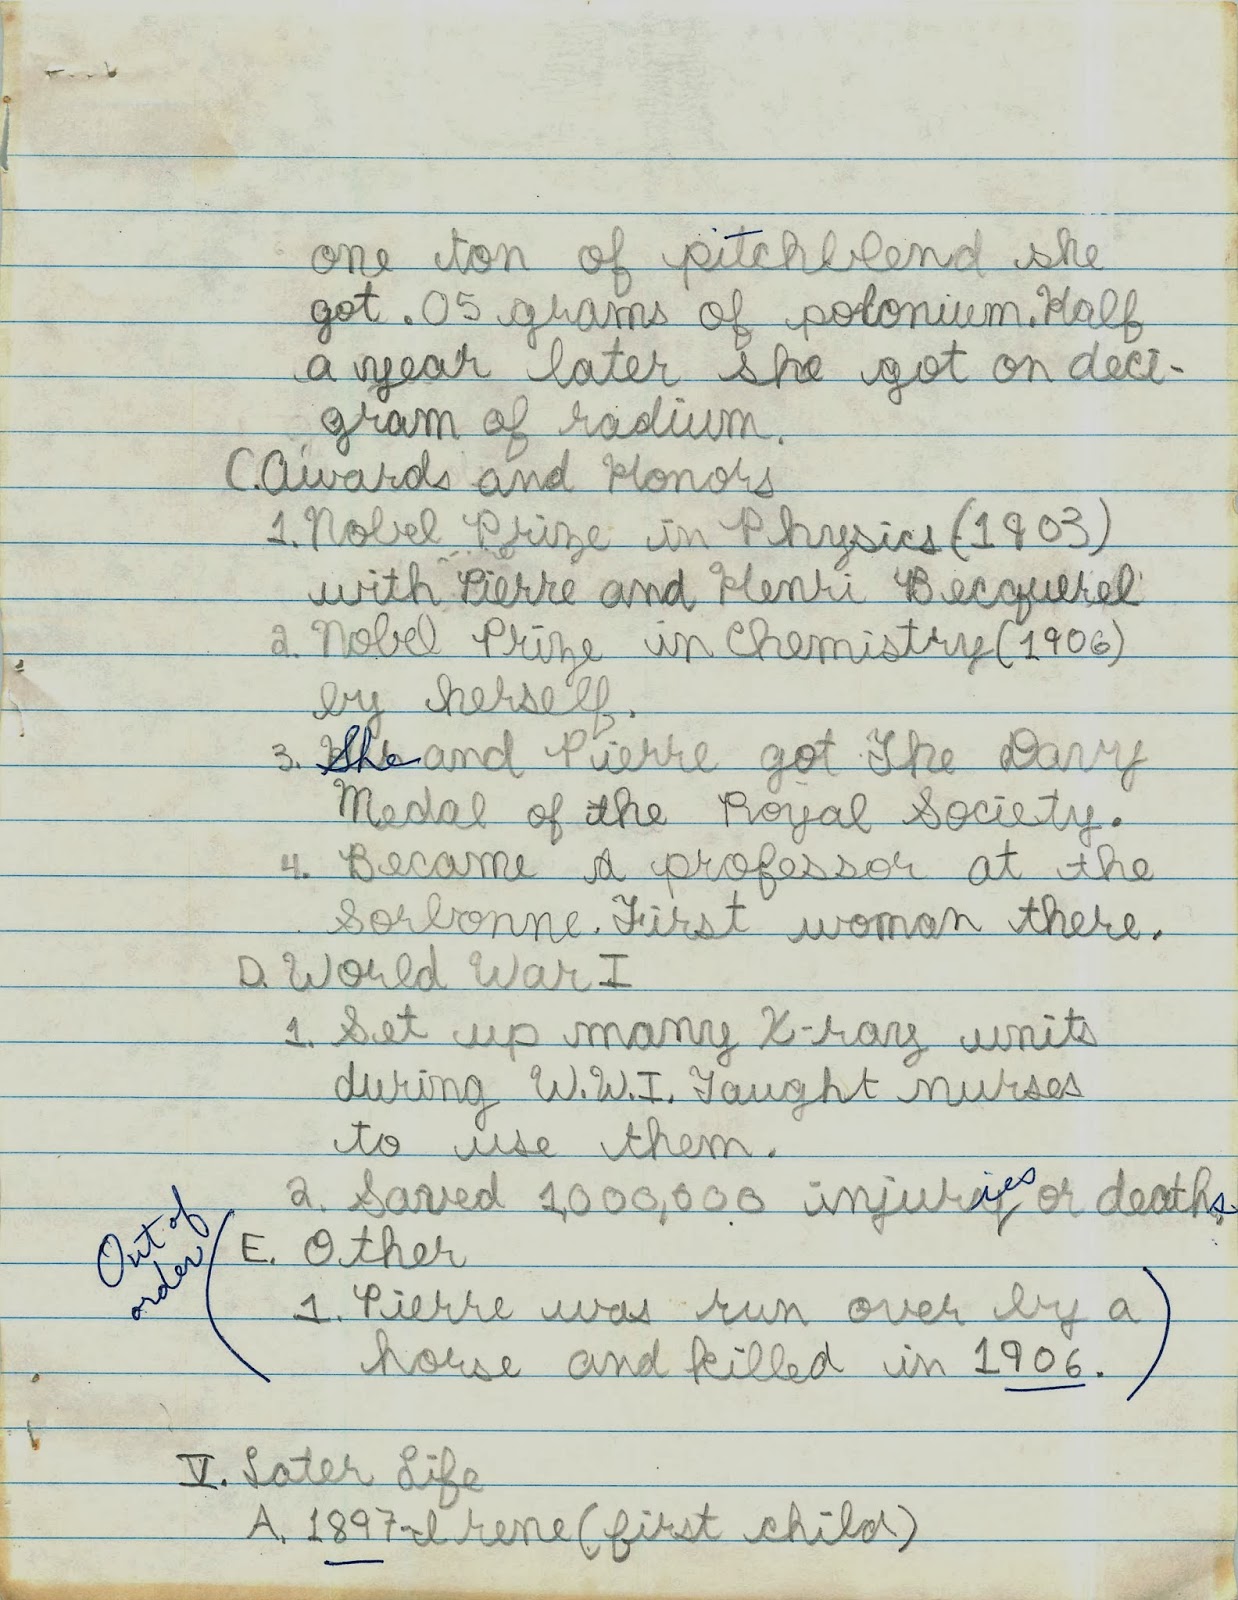 one ton of pitchblend she
got .05 grams of polonium. Half
a year later she got on deci-
gram of radium.
C. Awards and Honors
1. Nobel Prize in Physics (1903)
with Pierre and Henri Becquerel
2. Nobel Prize in Chemistry (1906)
by herself.
3. She and Pierre got The Davy
Medal of the Royal Society.
4. Became A professor at the
Sorbonne. First woman there.
D. World War I
1. Set up many X-ray units
during W.W.I. Taught nurses
to use them.
2. Saved 1,000,000 injuries or deaths.
Out of
order
E. Other
1. Pierre was run over by a
horse and killed in 1906.
V. Later Life
A. 1897-Irene (first child)